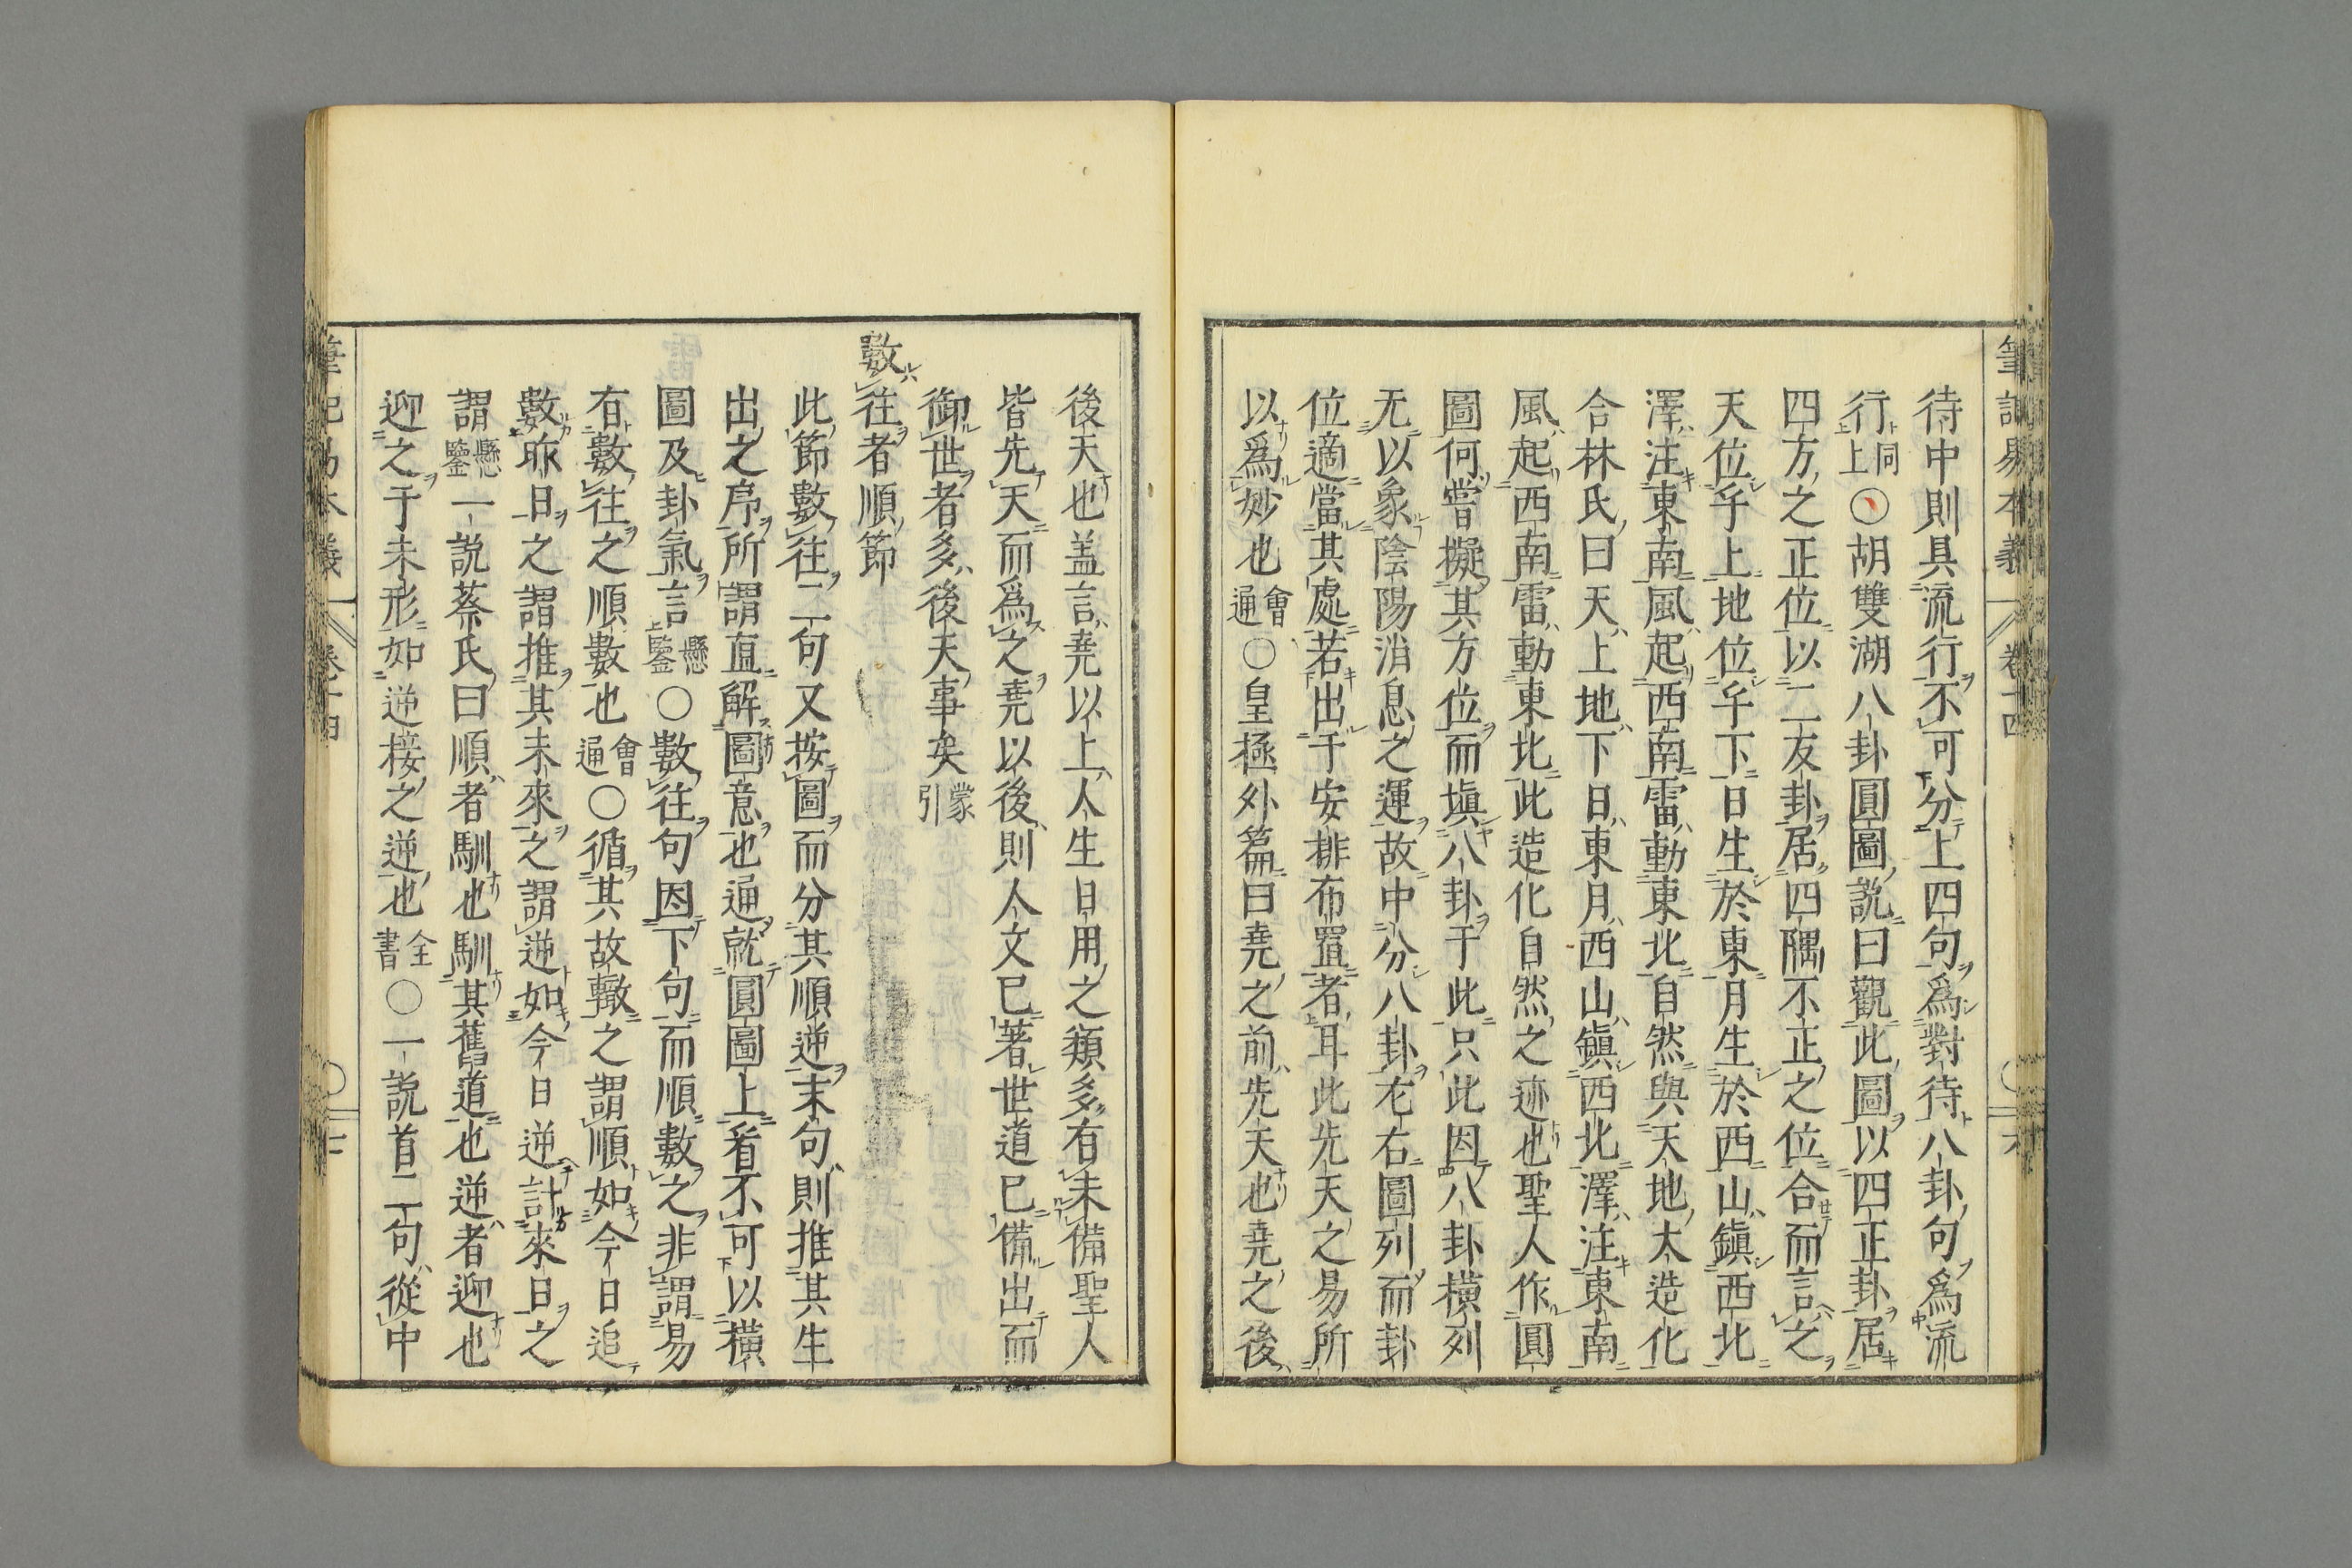 待中則具流行不可分上四句爲對待八卦句爲流
行同上〇胡雙湖八卦圓圖説曰觀此圖以四正卦居
四方之正位以二友卦居四隅不正之位合而言之
天位乎上地位乎下日生於東月生於西山鎭西北
澤注東南風起西南雷動東北自然與天地太造化
合林氏曰天上地下日東月西山鎭西北澤注東南
風起西南雷動東北此造化自然之迹也聖人作圓
圖何嘗擬其方位而塡八卦于此只此因八卦横列
无以象陰陽消息之運故中分八卦左右圖列而卦
位適當其處若出于安排布置者耳此先天之易所
以爲妙也會通〇皇極外篇曰堯之前先天也堯之後
後天也盖言堯以上人生日用之類多有未備聖人
皆先天而爲之堯以後則人文已著世道已備出而
御世者多後天事矣蒙引
數往者順節
此節數往二句又按圖而分其順逆末句則推其生
出之序所謂直解圖意也通就圓圖上看不可以横
圖及卦氣言懸鑒〇數往句因下句而順數之非謂易
有數往之順數也會通〇循其故轍之謂順如今日追
數昨日之謂推其未來之謂逆如今日逆計來日之
謂懸鑒一説蔡氏曰順者馴也馴其舊道也逆者迎也
迎之于未形如逆接之逆也全書〇一説首二句從中
筆記易本義 卷十四